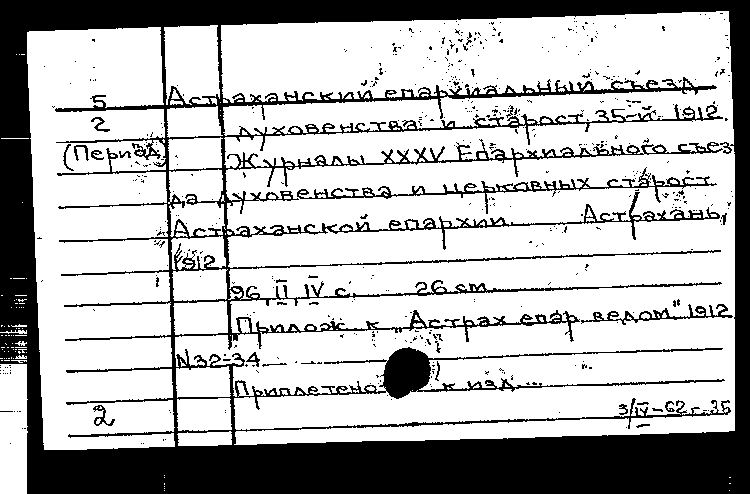 5 Астраханский епархиальный съезд
2 духовенства и старост, 35-й. 1912.
(Период) Журналы XXXV Епархиального съез-
да духовенства и церковных старост
Астраханской епархии. Астрахань,
1912
96, II, IV с. 26 см.
Прилож. к „Астрах. епар. ведом." 1912
N.32-34.
Приплетено к изд....
2 3/IV-62 г. 35